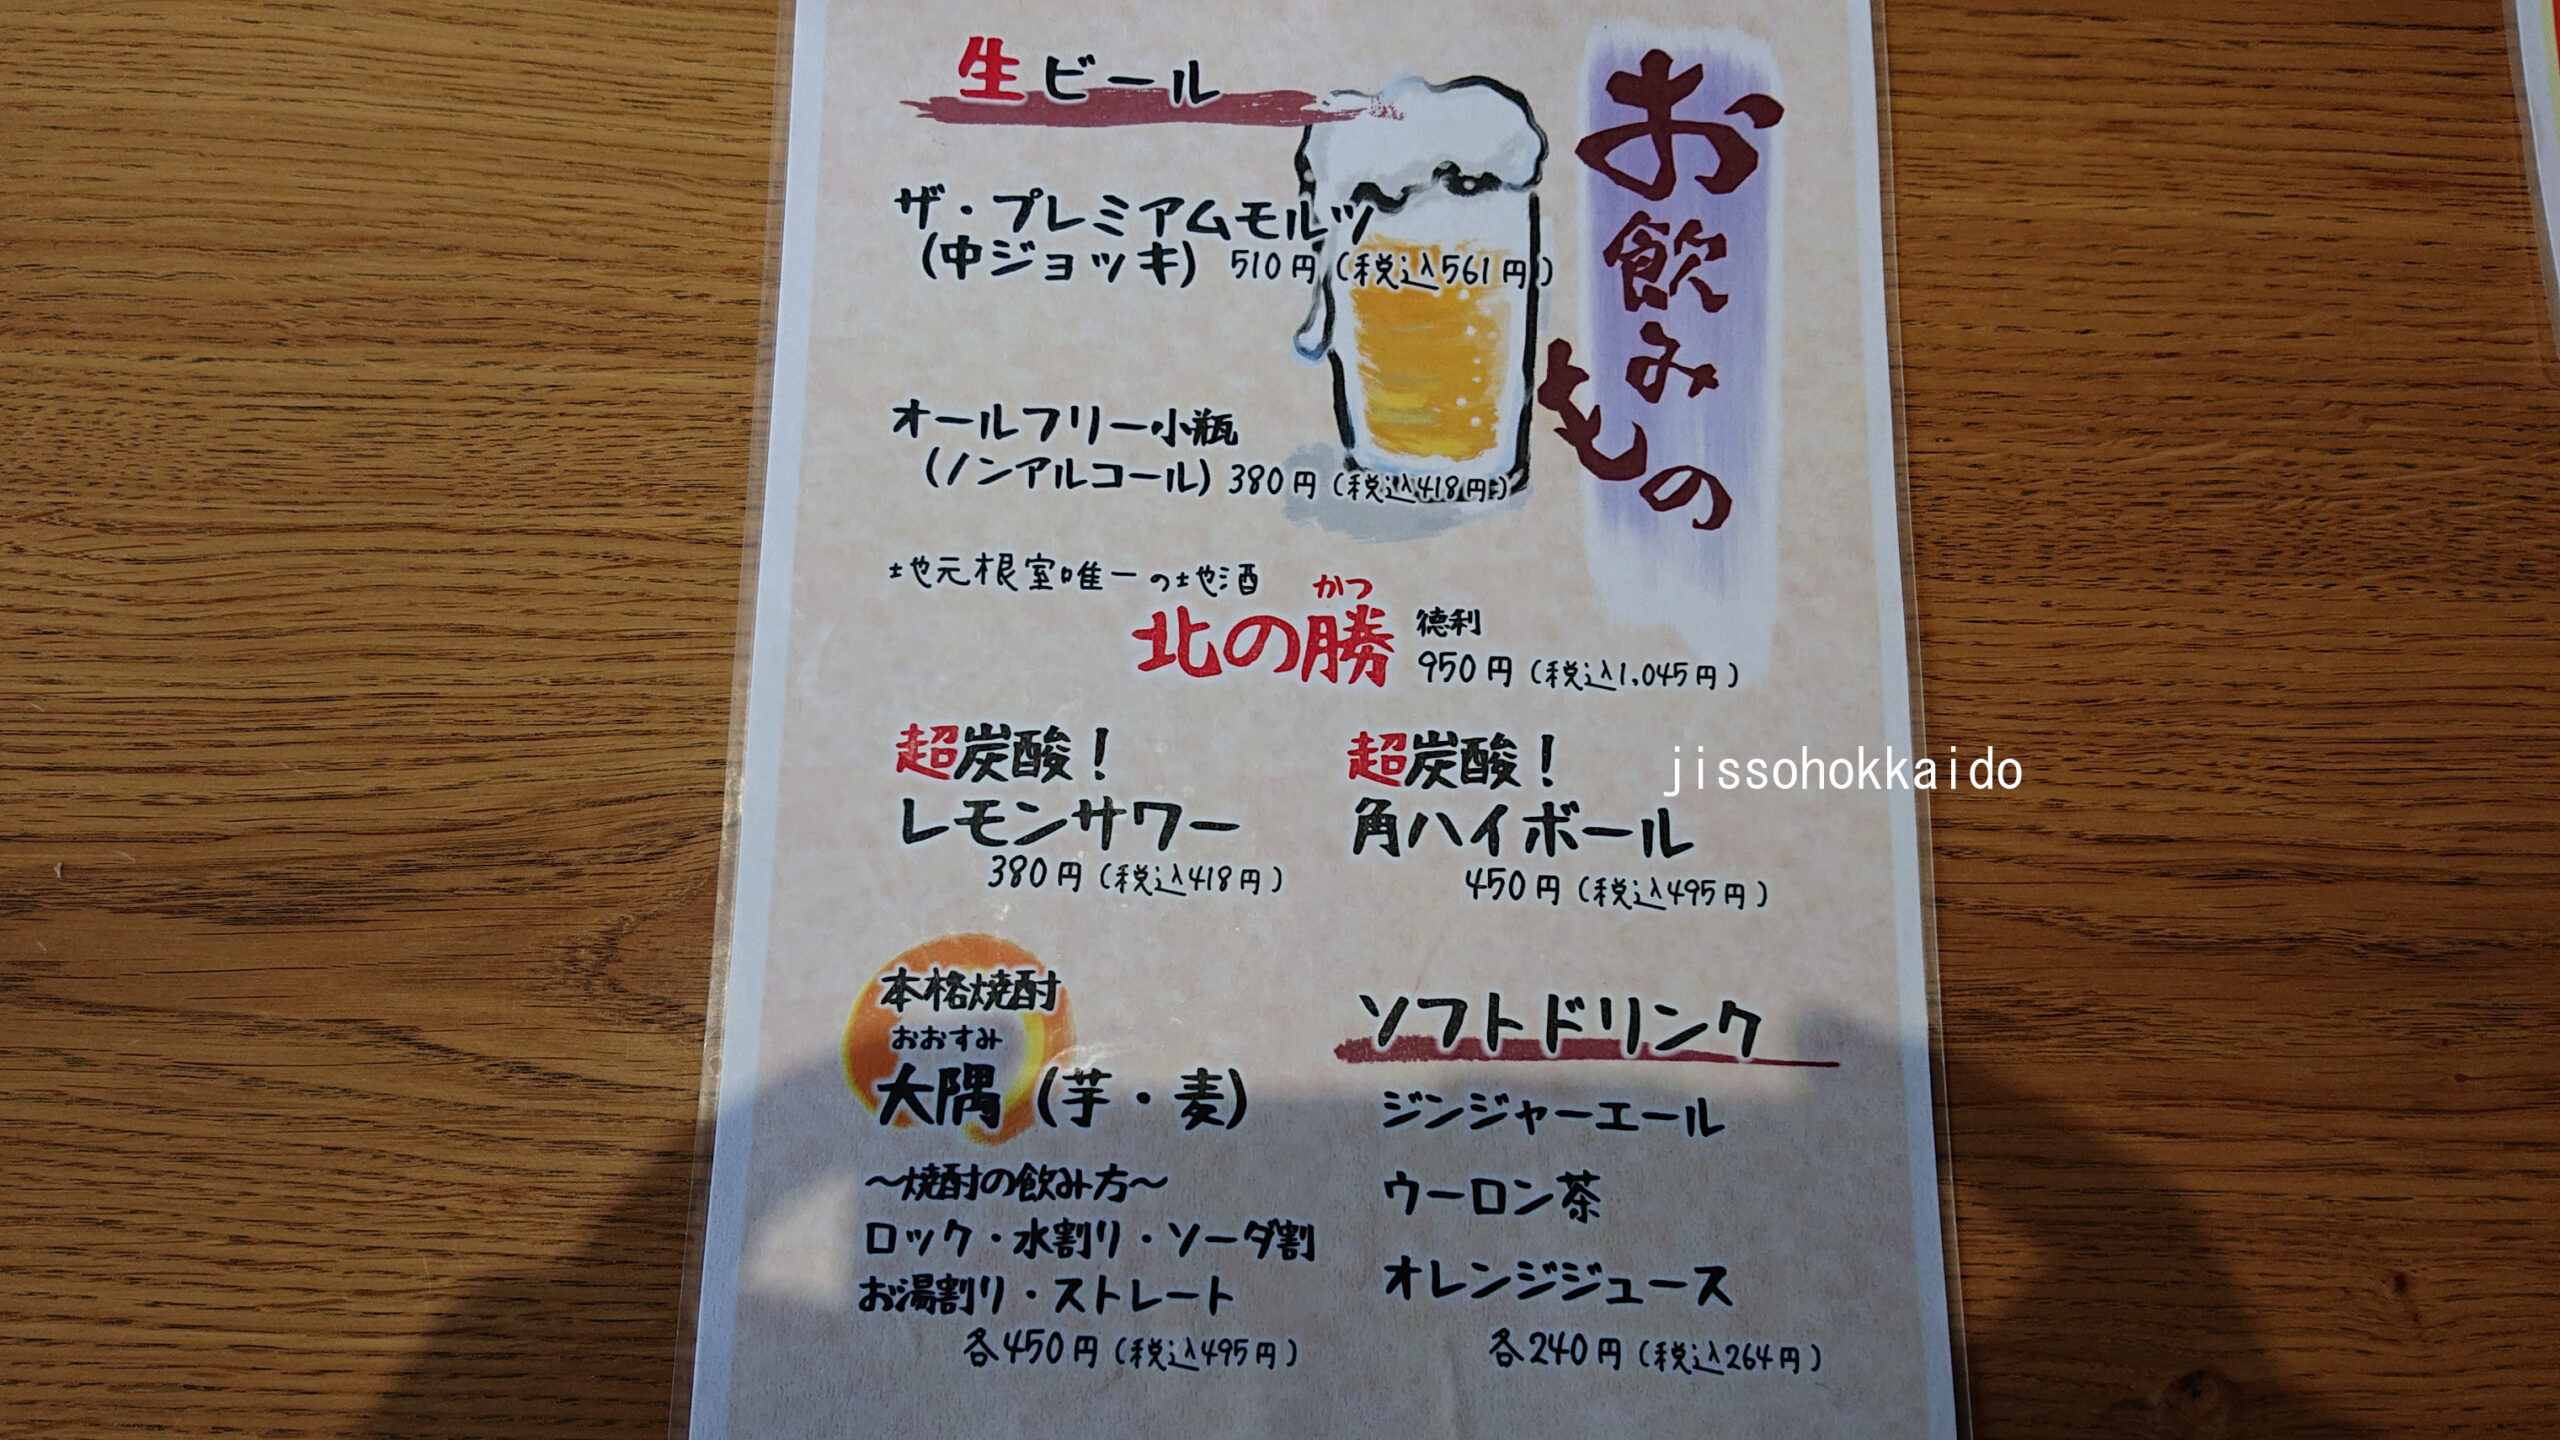 お飲みもの
生ビール
ザ・プレミアムモルツ
(中ジョッキ) 510円 (税込561円)
オールフリー小瓶
(ノンアルコール) 380円 (税込418円)
地元根室唯一の地酒
かつ
北の勝 徳利
950円 (税込1,045円)
超炭酸!
レモンサワー
380円 (税込418円)
超炭酸!
角ハイボール
450円 (税込495円)
jissohokkaido
本格焼酎
おおすみ
大隅 (芋・麦)
〜焼酎の飲み方〜
ロック・水割り・ソーダ割
お湯割り・ストレート
各450円 (税込495円)
ソフトドリンク
ジンジャーエール
ウーロン茶
オレンジジュース
各240円 (税込264円)